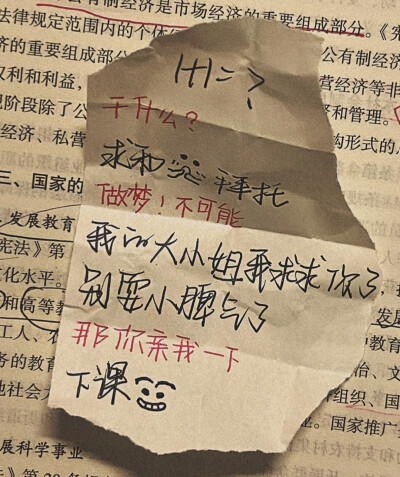 有制经济是市场经济的重要组成部分。《宪
法律规定范围内的个体
的重要组成部分
公有制经
权利和利益，
营经济等非
现阶段除了公
督和管理。
经济、私营
构形式的
1+1=？
干什么？
求和 拜托
做梦！不可能
我的大小姐我求求你了
别耍小脾气了
那你亲我一下
下课
三、国家的
发展教育
宪法》第
文化水平。
和高等教
发展
工人、农
中教育
务的教育
治、文
地社会
组织、国
国家推广
展科学事业